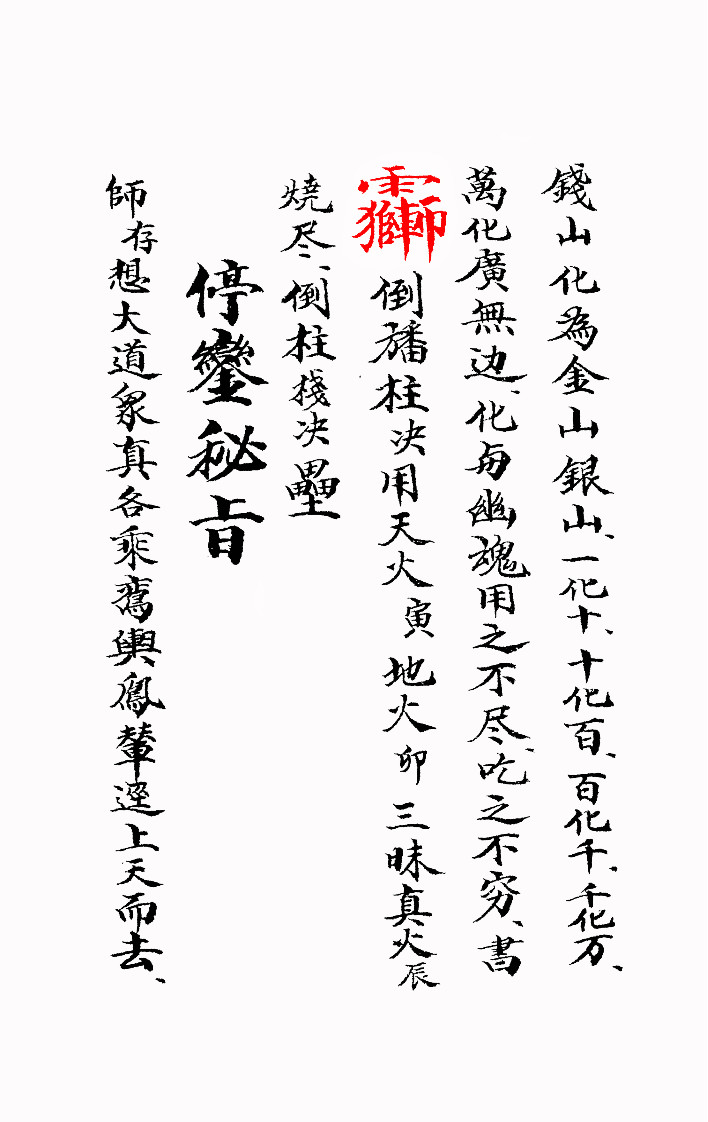 錢山化為金山銀山、一化十、十化百、百化千、千化万、
萬化廣無边、化与幽魂用之不尽、吃之不穷、書
倒旛柱决用天火寅地火卯三昧真火辰
燒尽、倒柱栈决壘
停鑾秘旨
師存想大道衆真各乘鸞輿鳳輦逕上天而去、